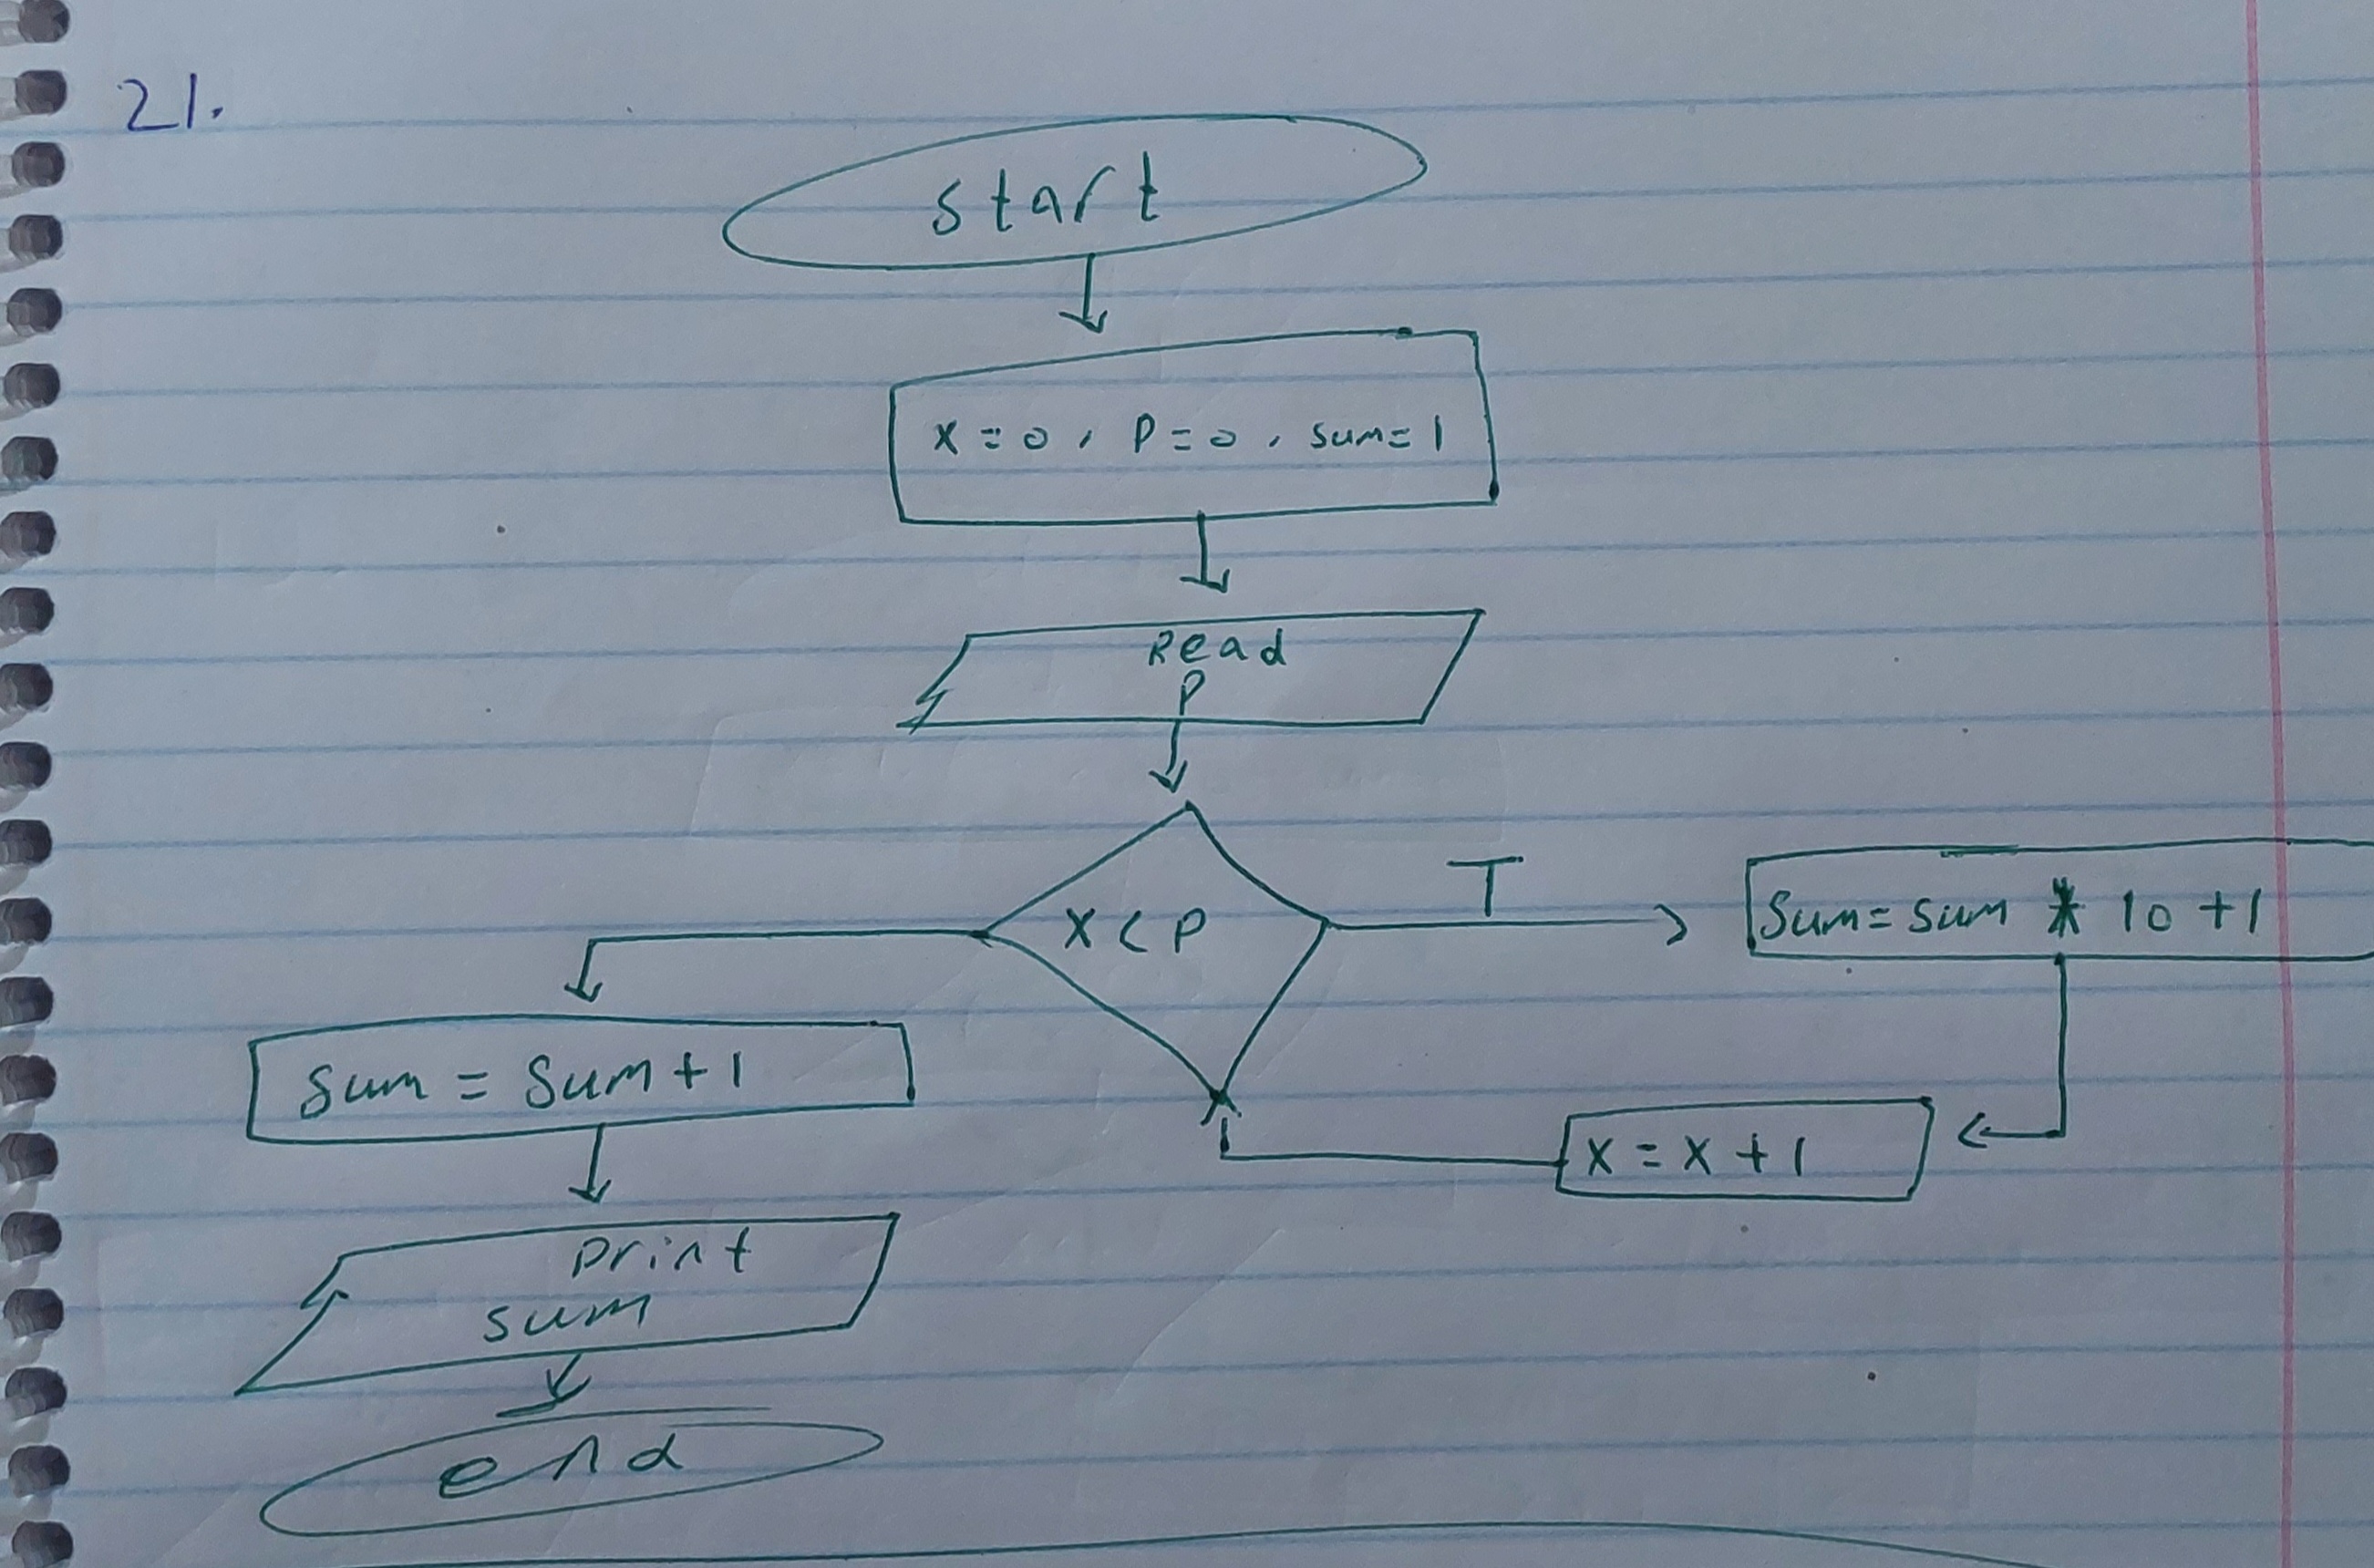 21.
start
x = 0, P = 0, sum = 1
Read
P
X < P
T
Sum = sum * 10 + 1
Sum = Sum + 1
X = X + 1
print
sum
end